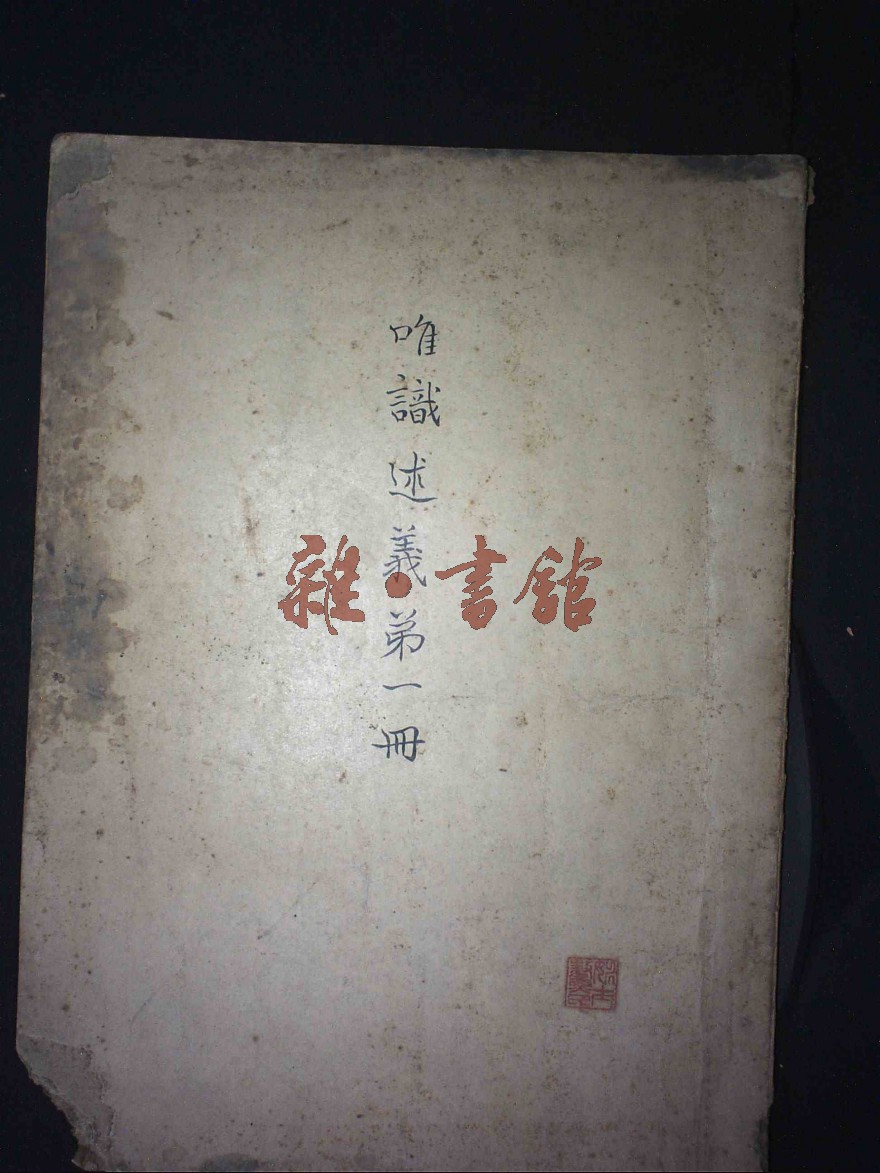 唯識述義第一冊
雜·書館